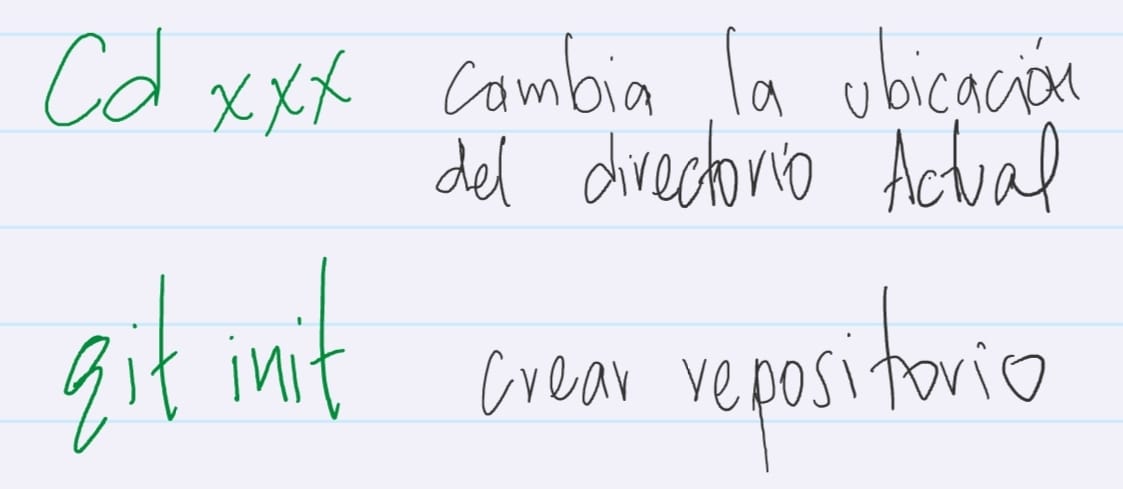 Cd xxx cambia la ubicación
del directorio Actual
git init crear repositorio